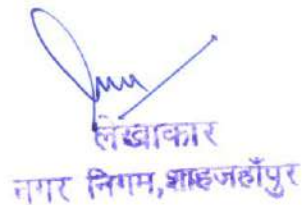 लेखाकार
नगर निगम,शाहजहाँपुर